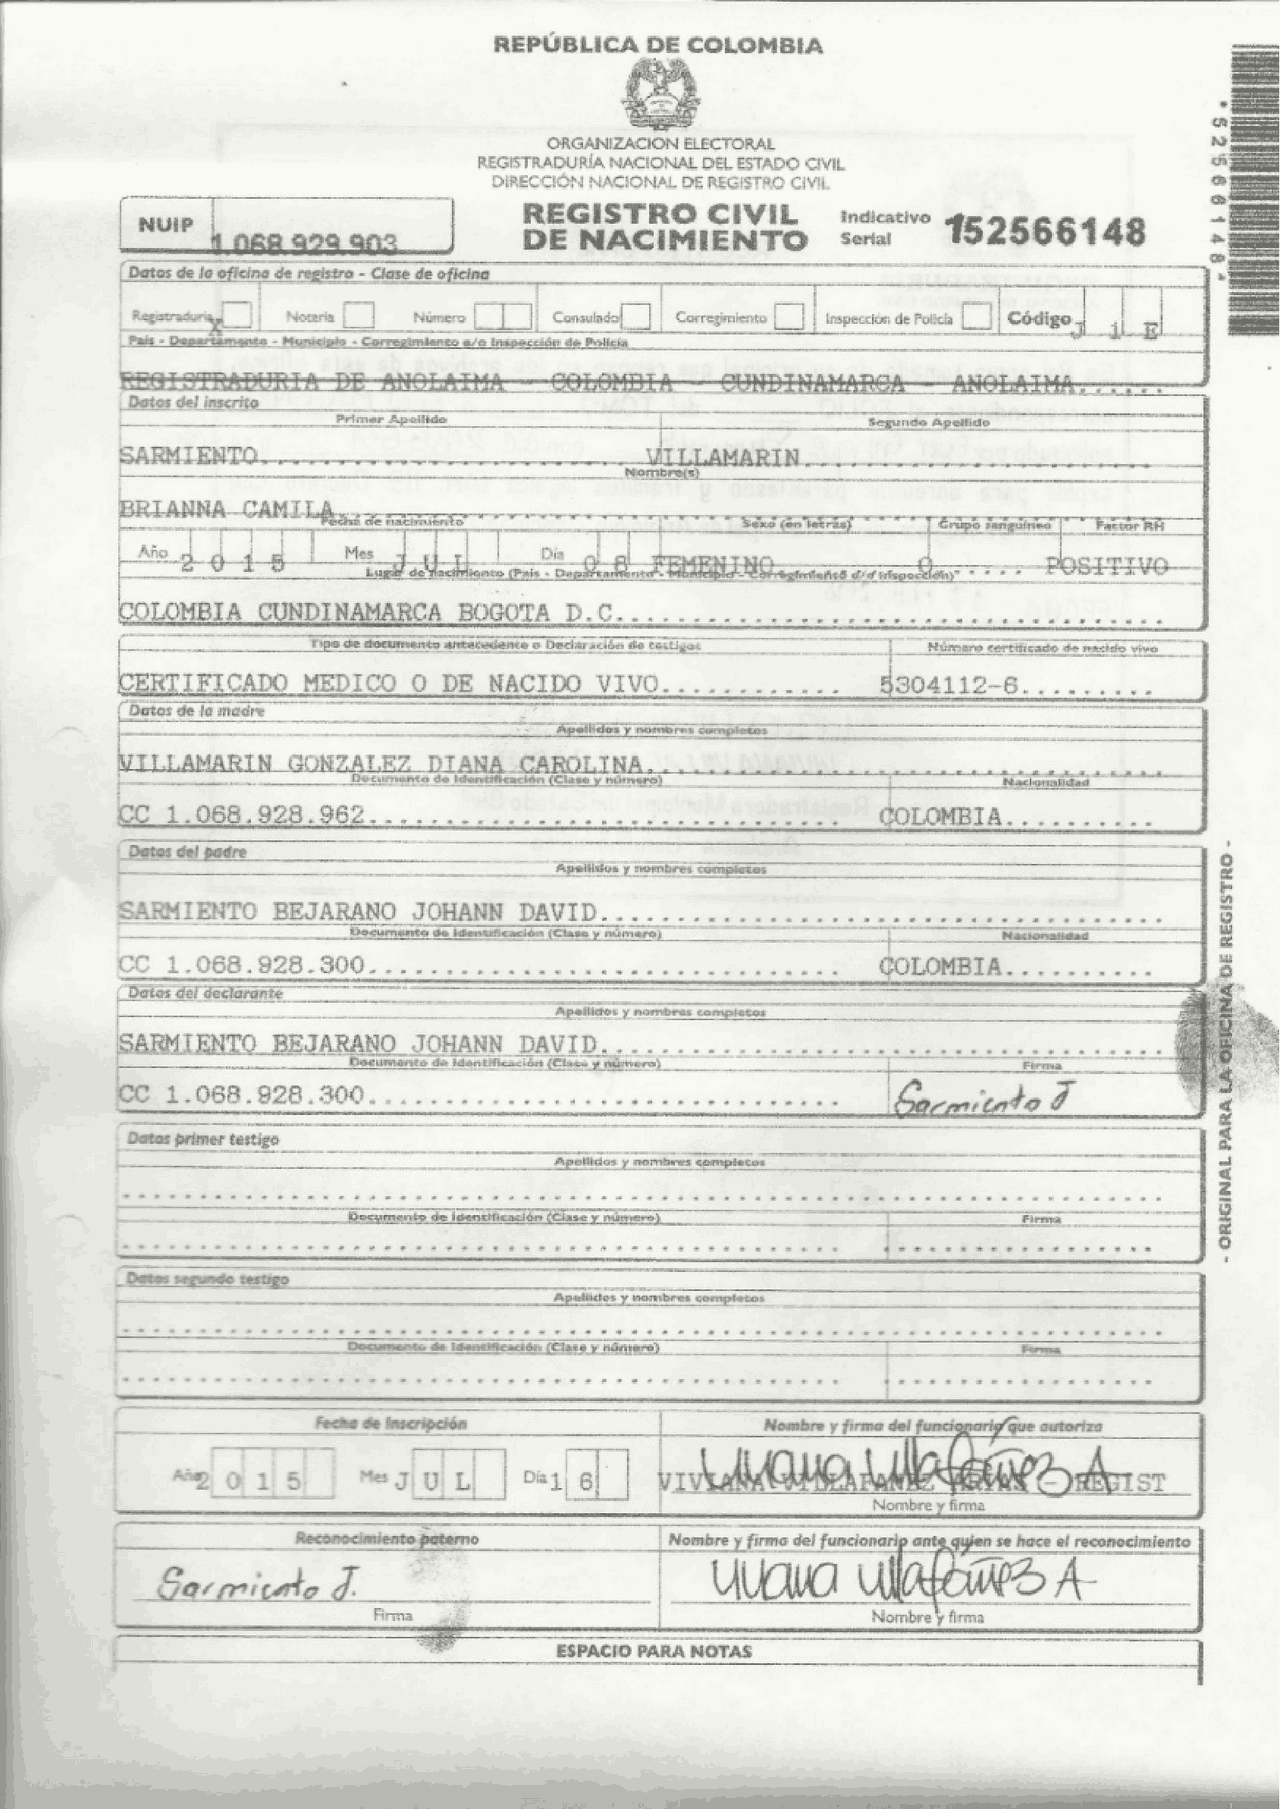 REPÚBLICA DE COLOMBIA
ORGANIZACION ELECTORAL
REGISTRADURÍA NACIONAL DEL ESTADO CIVIL
DIRECCIÓN NACIONAL DE REGISTRO CIVIL
NUIP 1.068.929.903
REGISTRO CIVIL DE NACIMIENTO
Indicativo Serial 152566148
*52566148*
Datos de la oficina de registro - Clase de oficina
Registraduría X Notaría Número Consulado Corregimiento Inspección de Policía Código J 1 E
País - Departamento - Municipio - Corregimiento e/o Inspección de Policía
REGISTRADURIA DE ANOLAIMA - COLOMBIA - CUNDINAMARCA - ANOLAIMA......
Datos del inscrito
Primer Apellido Segundo Apellido
SARMIENTO VILLAMARIN
Nombre(s)
BRIANNA CAMILA
Fecha de nacimiento Sexo (en letras) Grupo sanguíneo Factor RH
Año 2015 Mes JUL Día 08 FEMENINO O POSITIVO
Lugar de nacimiento (País - Departamento - Municipio - Corregimiento e/o Inspección)
COLOMBIA CUNDINAMARCA BOGOTA D.C.
Tipo de documento antecedente o Declaración de testigos Número certificado de nacido vivo
CERTIFICADO MEDICO O DE NACIDO VIVO 5304112-6
Datos de la madre
Apellidos y nombres completos
VILLAMARIN GONZALEZ DIANA CAROLINA
Documento de Identificación (Clase y número) Nacionalidad
CC 1.068.928.962 COLOMBIA
Datos del padre
Apellidos y nombres completos
SARMIENTO BEJARANO JOHANN DAVID
Documento de Identificación (Clase y número) Nacionalidad
CC 1.068.928.300 COLOMBIA
Datos del declarante
Apellidos y nombres completos
SARMIENTO BEJARANO JOHANN DAVID
Documento de Identificación (Clase y número) Firma
CC 1.068.928.300 Sarmiento J
Datos primer testigo
Apellidos y nombres completos
Documento de Identificación (Clase y número) Firma
Datos segundo testigo
Apellidos y nombres completos
Documento de Identificación (Clase y número) Firma
- ORIGINAL PARA LA OFICINA DE REGISTRO -
Fecha de Inscripción Nombre y firma del funcionario que autoriza
Año 2015 Mes JUL Día 16 VIVIANA VILLAFAÑEZ ARIAS - REGIST
Nombre y firma
Reconocimiento paterno Nombre y firma del funcionario ante quien se hace el reconocimiento
Sarmiento J. Viviana Villafañez A
Firma Nombre y firma
ESPACIO PARA NOTAS